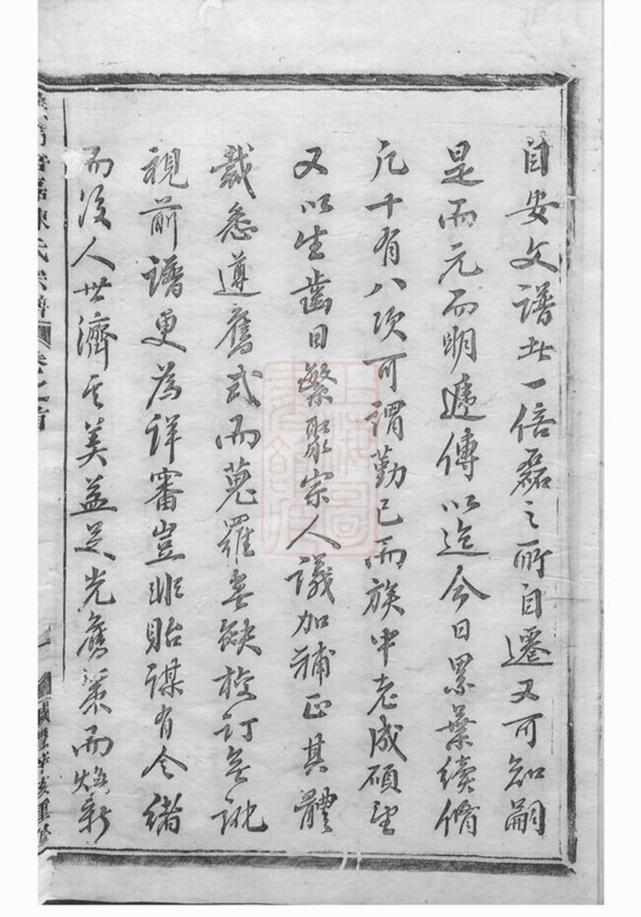 自安文譜共一倍磊之所自遷又可知嗣
是而元而明遞傳以迄今日累葉續脩
凡十有八次可謂勤已而族中老成碩望
又以生齒日繁聚宗人議加補正其體
裁悉遵舊式而蒐羅無缺校訂無訛
視前譜更為詳審豈非貽謀有令緒
而後人世濟其美益足光舊業而煥新
陳氏宗譜
卷之首
咸豐辛亥重修